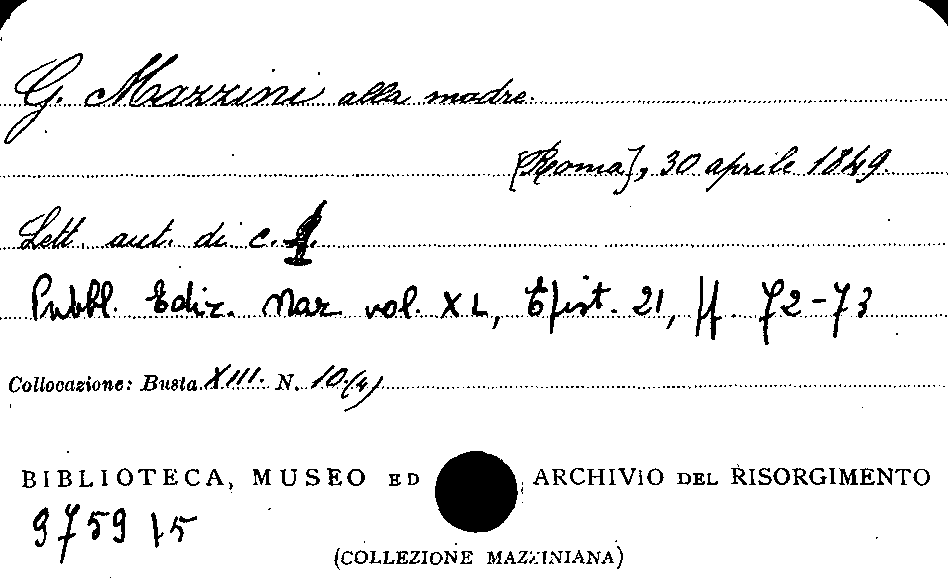 G. Mazzini alla madre.
[Roma], 30 aprile 1849.
Lett. aut. di c. 1.
Pubbl. Ediz. Naz. vol. XL, Epist. 21, pp. 72-73
Collocazione: Busta XIII. N. 10.(4)
BIBLIOTECA, MUSEO ED ARCHIVIO DEL RISORGIMENTO
9759 15
(COLLEZIONE MAZZINIANA)